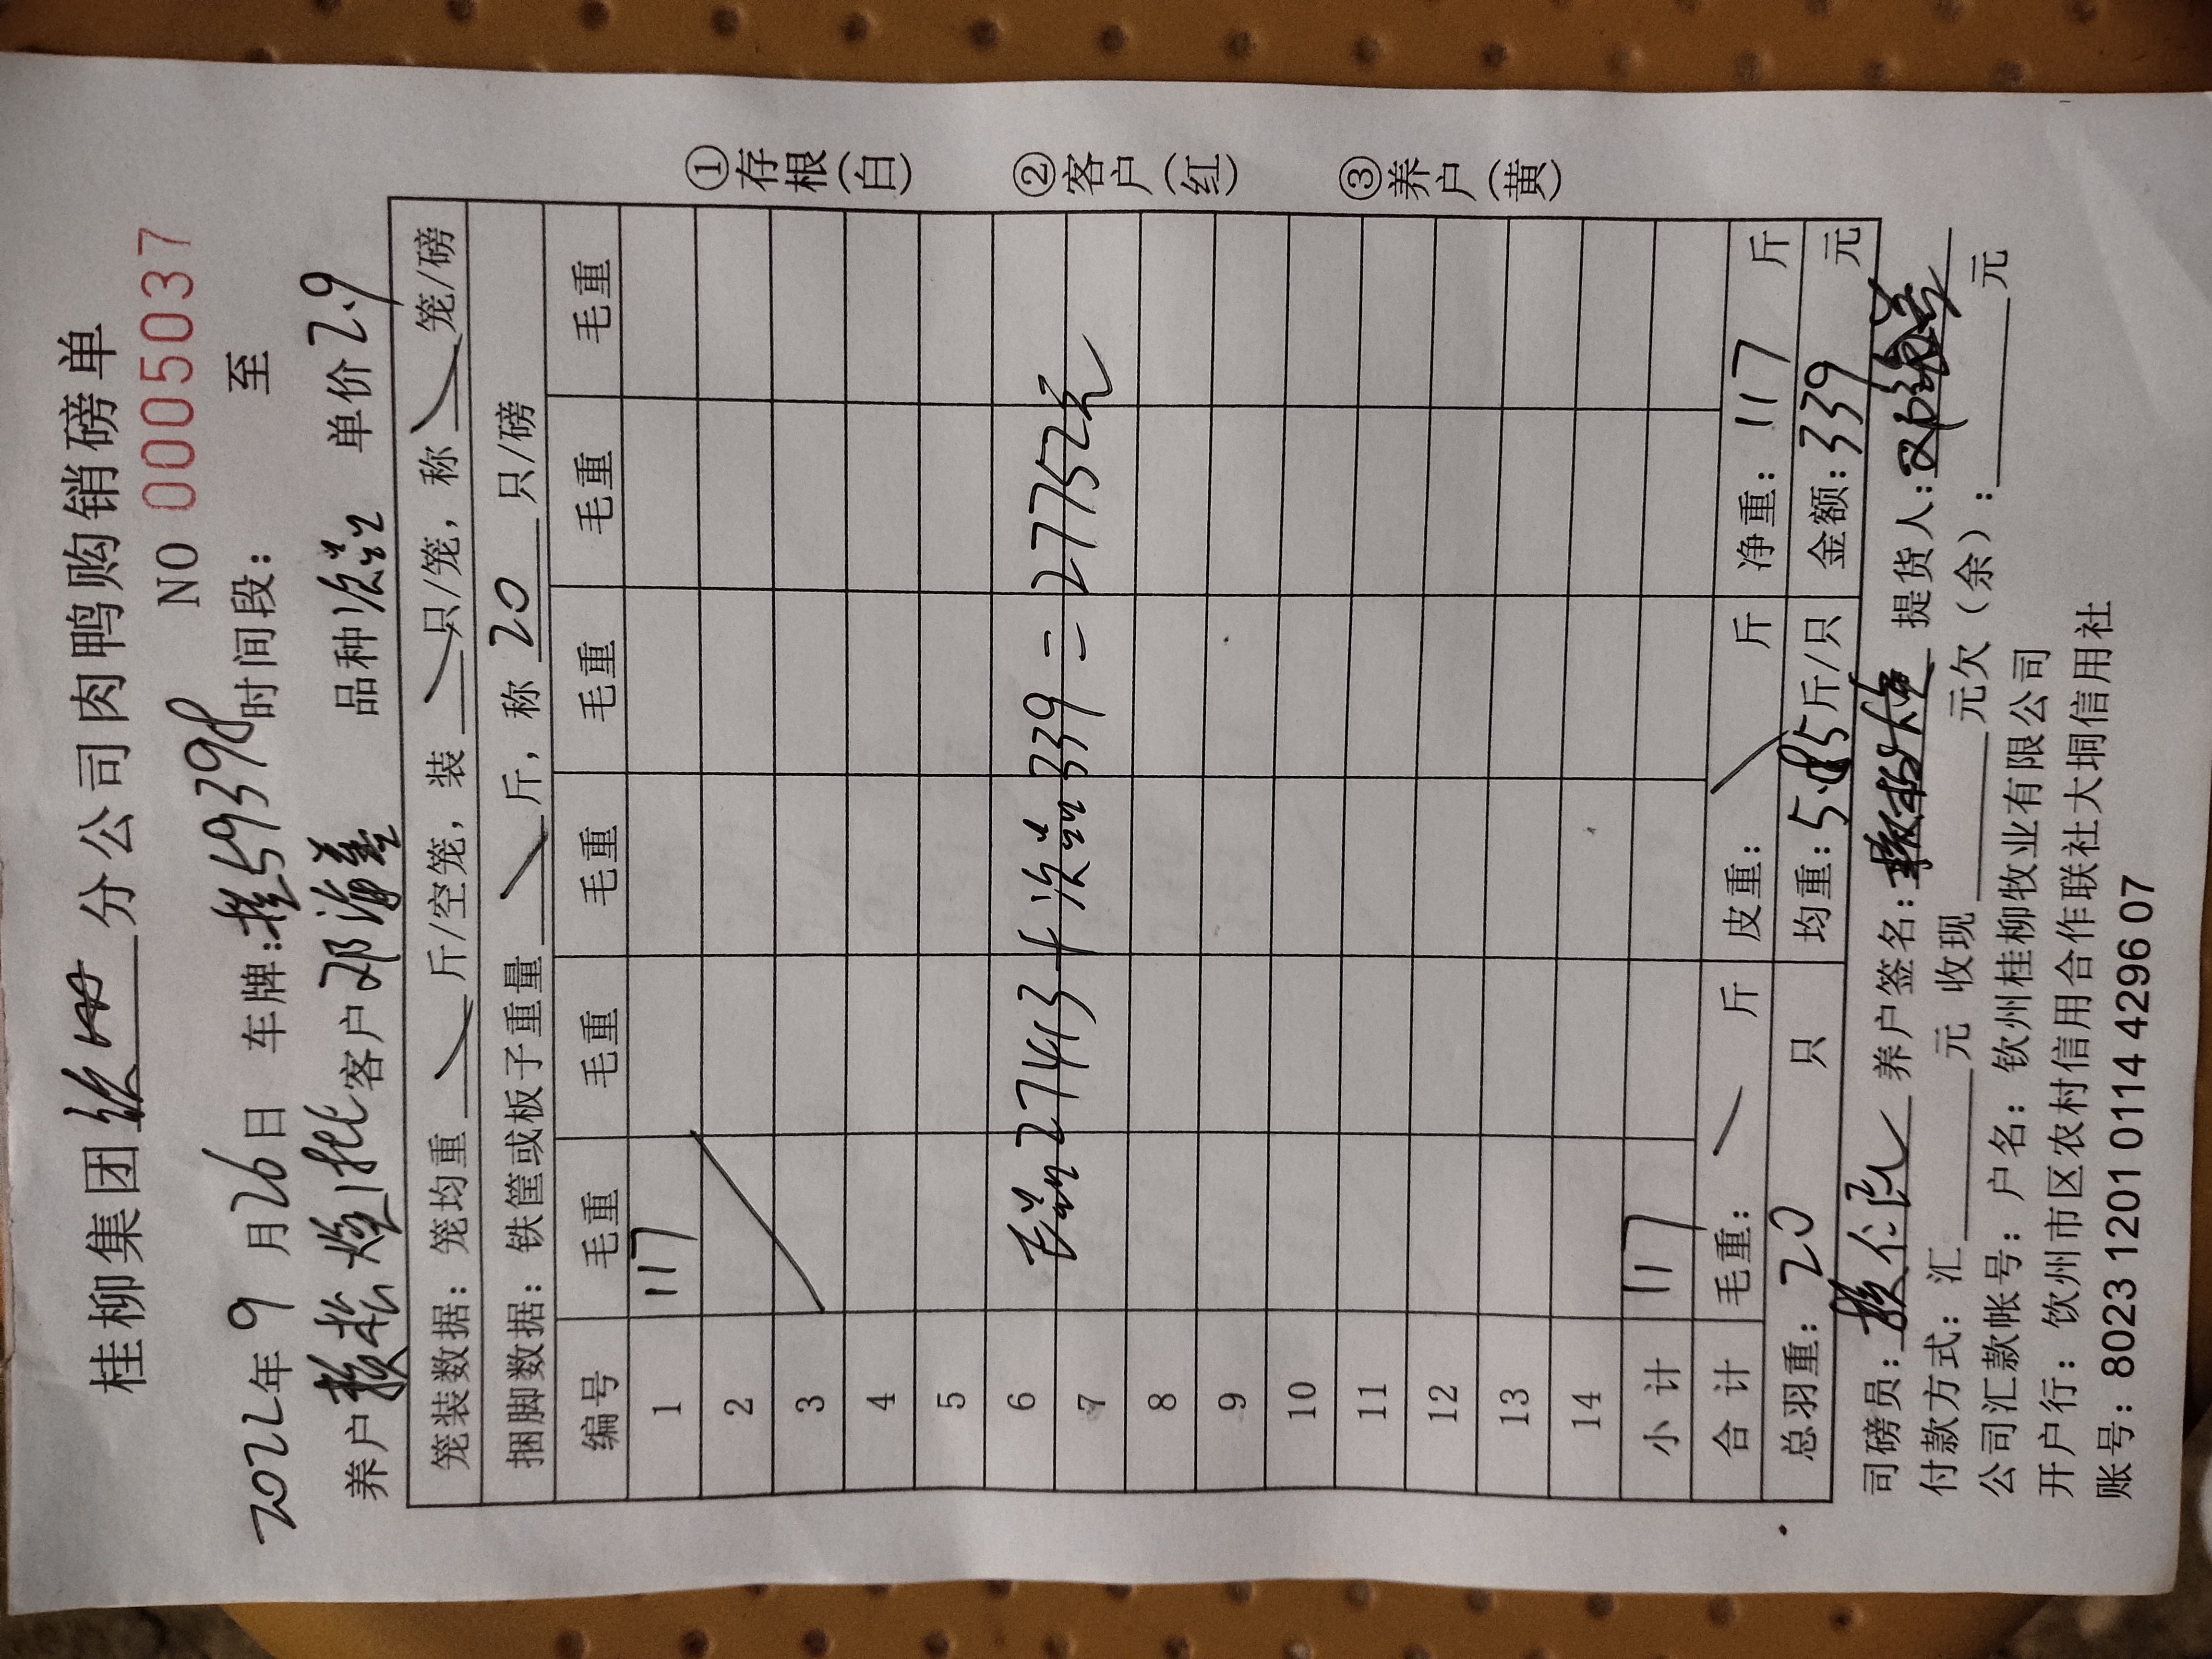 桂柳集团钦州分公司肉鸭购销磅单
NO 0005037
2022年9月26日 车牌:桂59398 时间段: 至
养户赖松煌1批 客户邓海益 品种次品 单价2.9
笼装数据: 笼均重 斤/空笼, 装 只/笼, 称 笼/磅
捆脚数据: 铁筐或板子重量 斤, 称 20 只/磅
编号 毛重 毛重 毛重 毛重 毛重 毛重
1 117
2
3
4
5
6
7
毛品27413+次品339=27752元
8
9
10
11
12
13
14
小计 117
合计 毛重: 斤 皮重: 斤 净重: 117 斤
总羽重: 20 只 均重: 5.85斤/只 金额: 339 元
司磅员: 养户签名: 赖松煌 提货人: 邓
付款方式: 汇 元 收现 元欠(余): 元
公司汇款帐号: 户名: 钦州桂柳牧业有限公司
开户行: 钦州市区农村信用合作联社大垌信用社
账号: 8023 1201 0114 4296 07
①存根(白) ②客户(红) ③养户(黄)